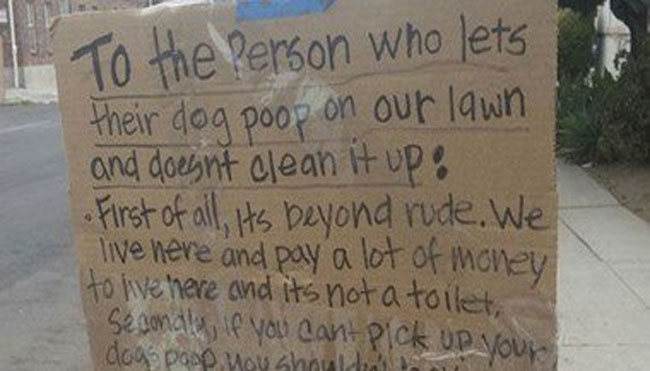 To the Person who lets
their dog poop on our lawn
and doesnt clean it up:
• First of all, its beyond rude. We
live here and pay a lot of money
to live here and its not a toilet.
Secondly, if you cant pick up your
dogs poop you shouldn't